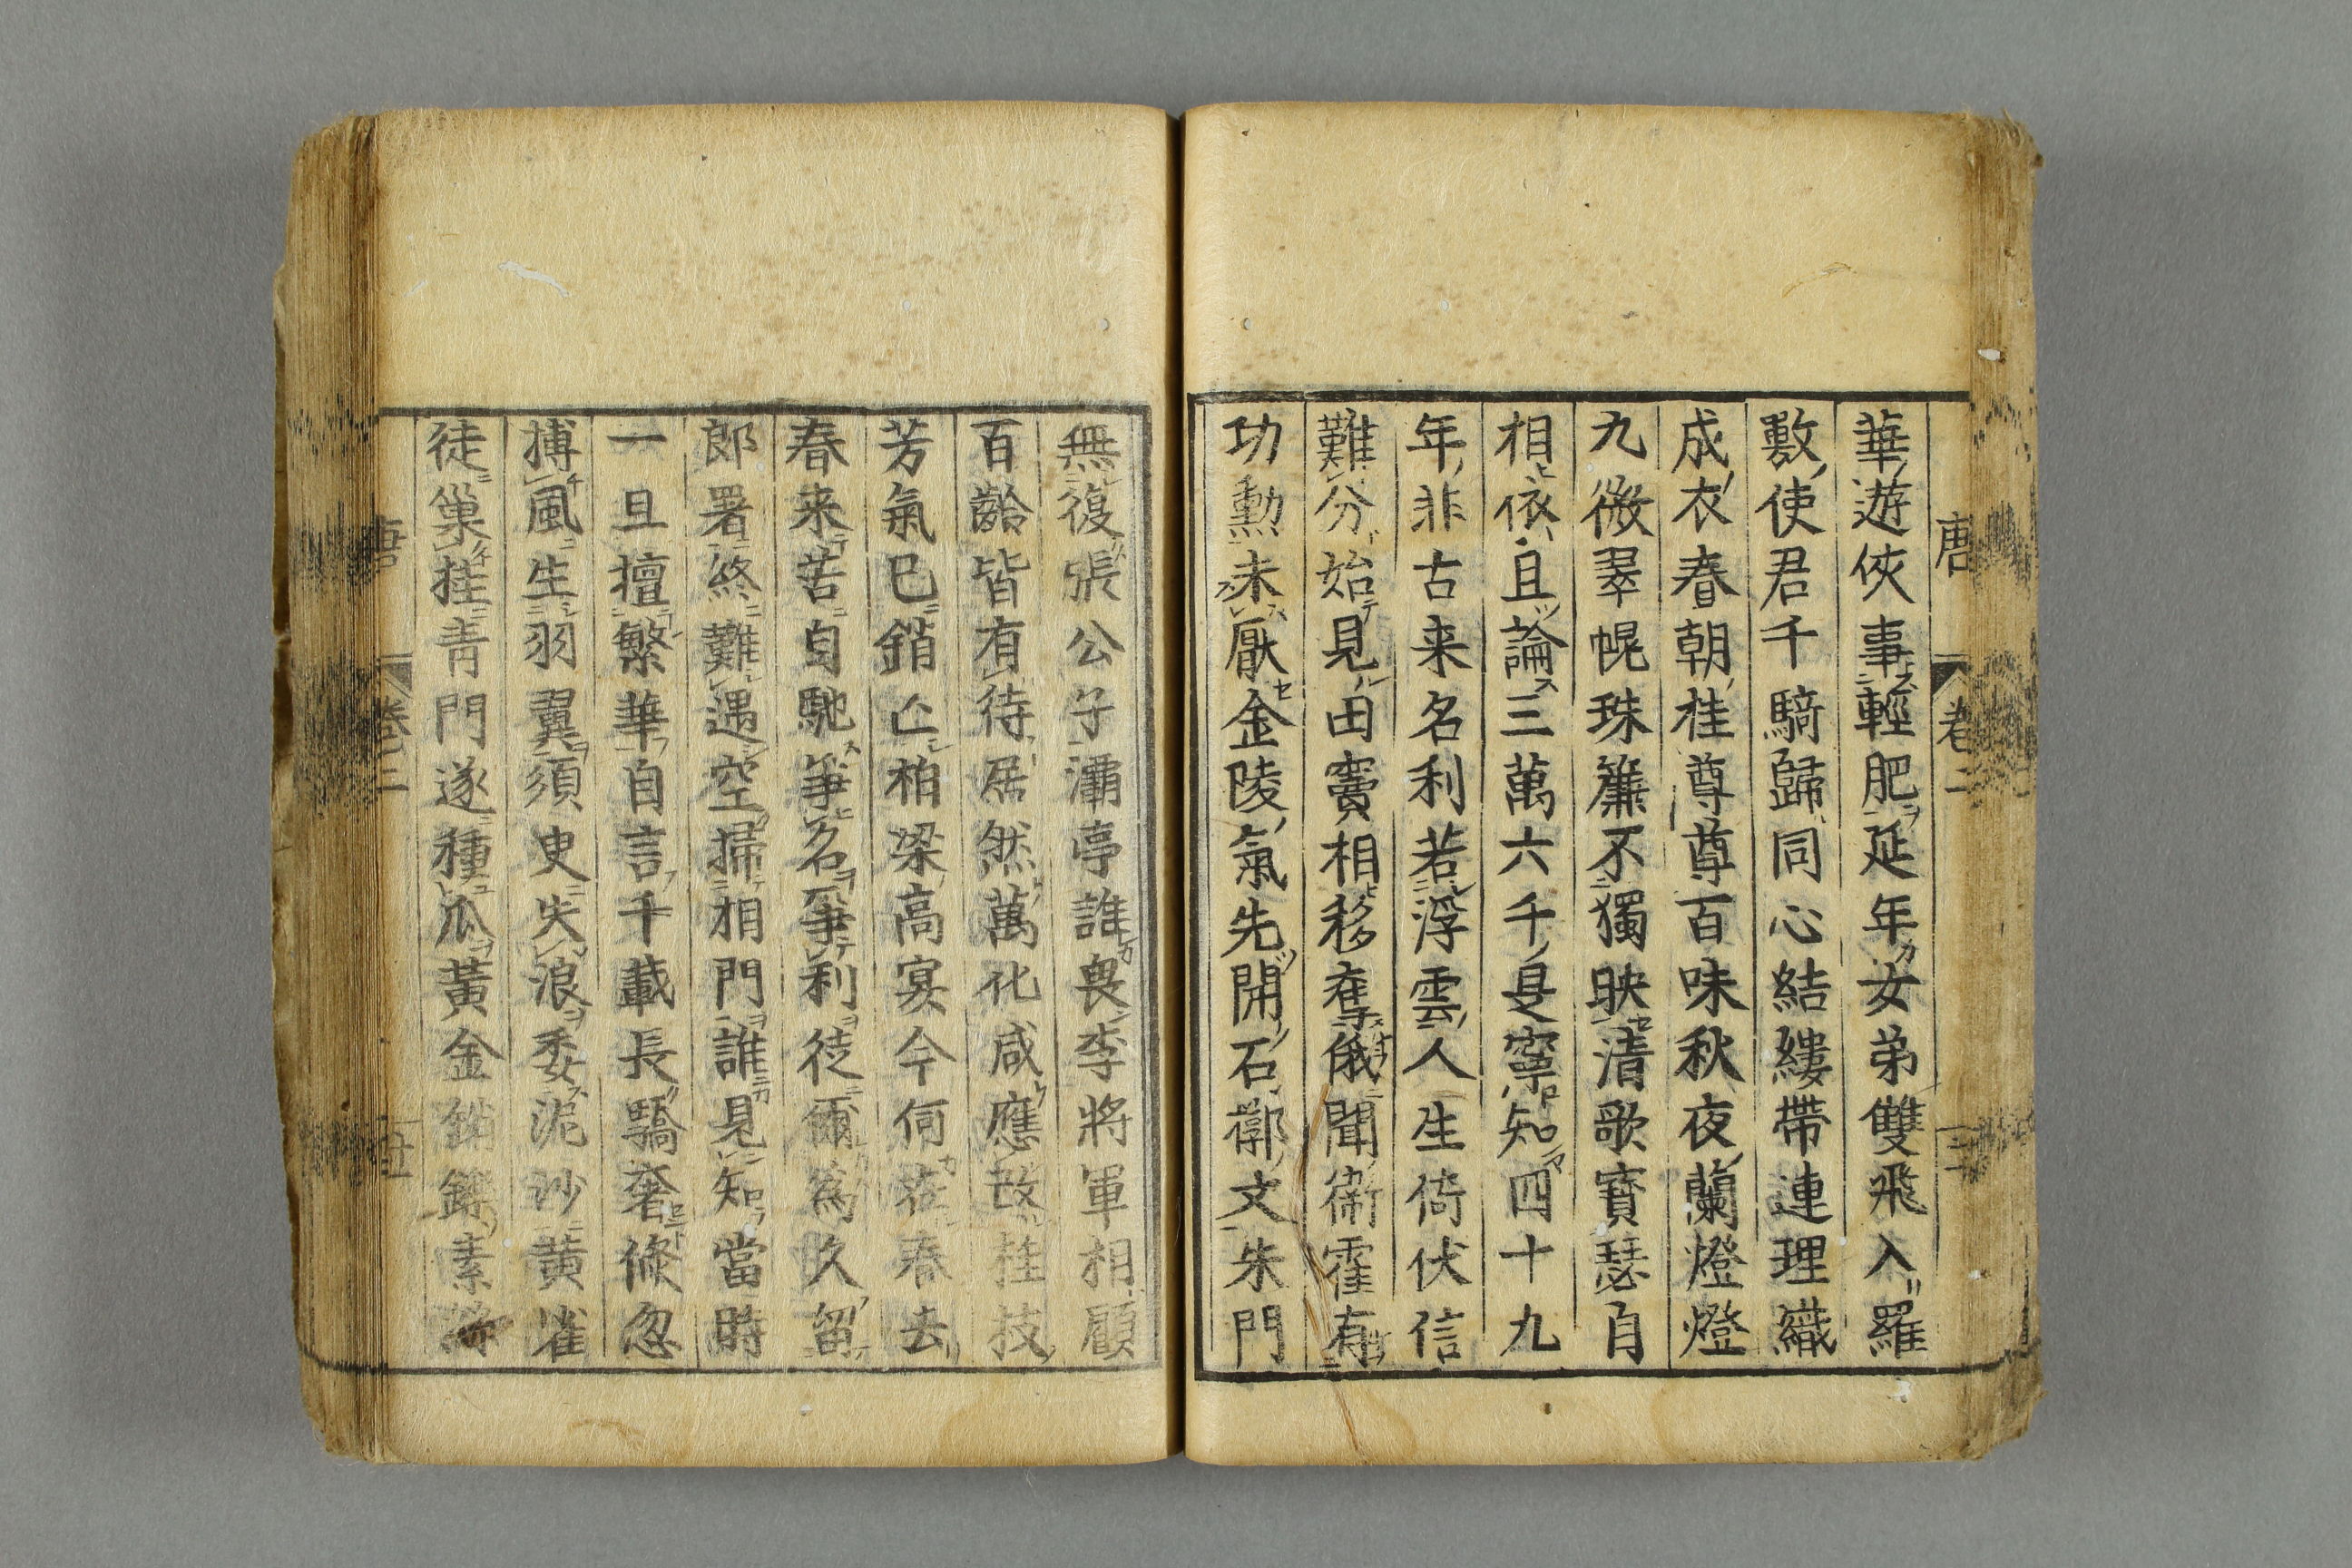 唐 卷二
華遊俠事輕肥延年女弟雙飛入羅
敷使君千騎歸同心結縷帶連理織
成衣春朝桂尊尊百味秋夜蘭燈燈
九微翠幌珠簾不獨映清歌寶瑟自
相依且論三萬六千是寧知四十九
年非古来名利若浮雲人生倚伏信
難分始見田竇相移奪俄聞衛霍有
功勳未厭金陵氣先開石槨文朱門
無復張公子灞亭誰畏李將軍相顧
百齡皆有待居然萬化咸應改桂技
芳氣已銷亡柏梁高宴今何在春去
春来苦自馳爭名爭利徒爾為久留
郎署終難遇空掃相門誰見知當時
一旦擅繁華自言千載長驕奢倏忽
搏風生羽翼須臾失浪委泥沙黄雀
徒巢桂青門遂種瓜黃金銷鑠素
唐 卷二